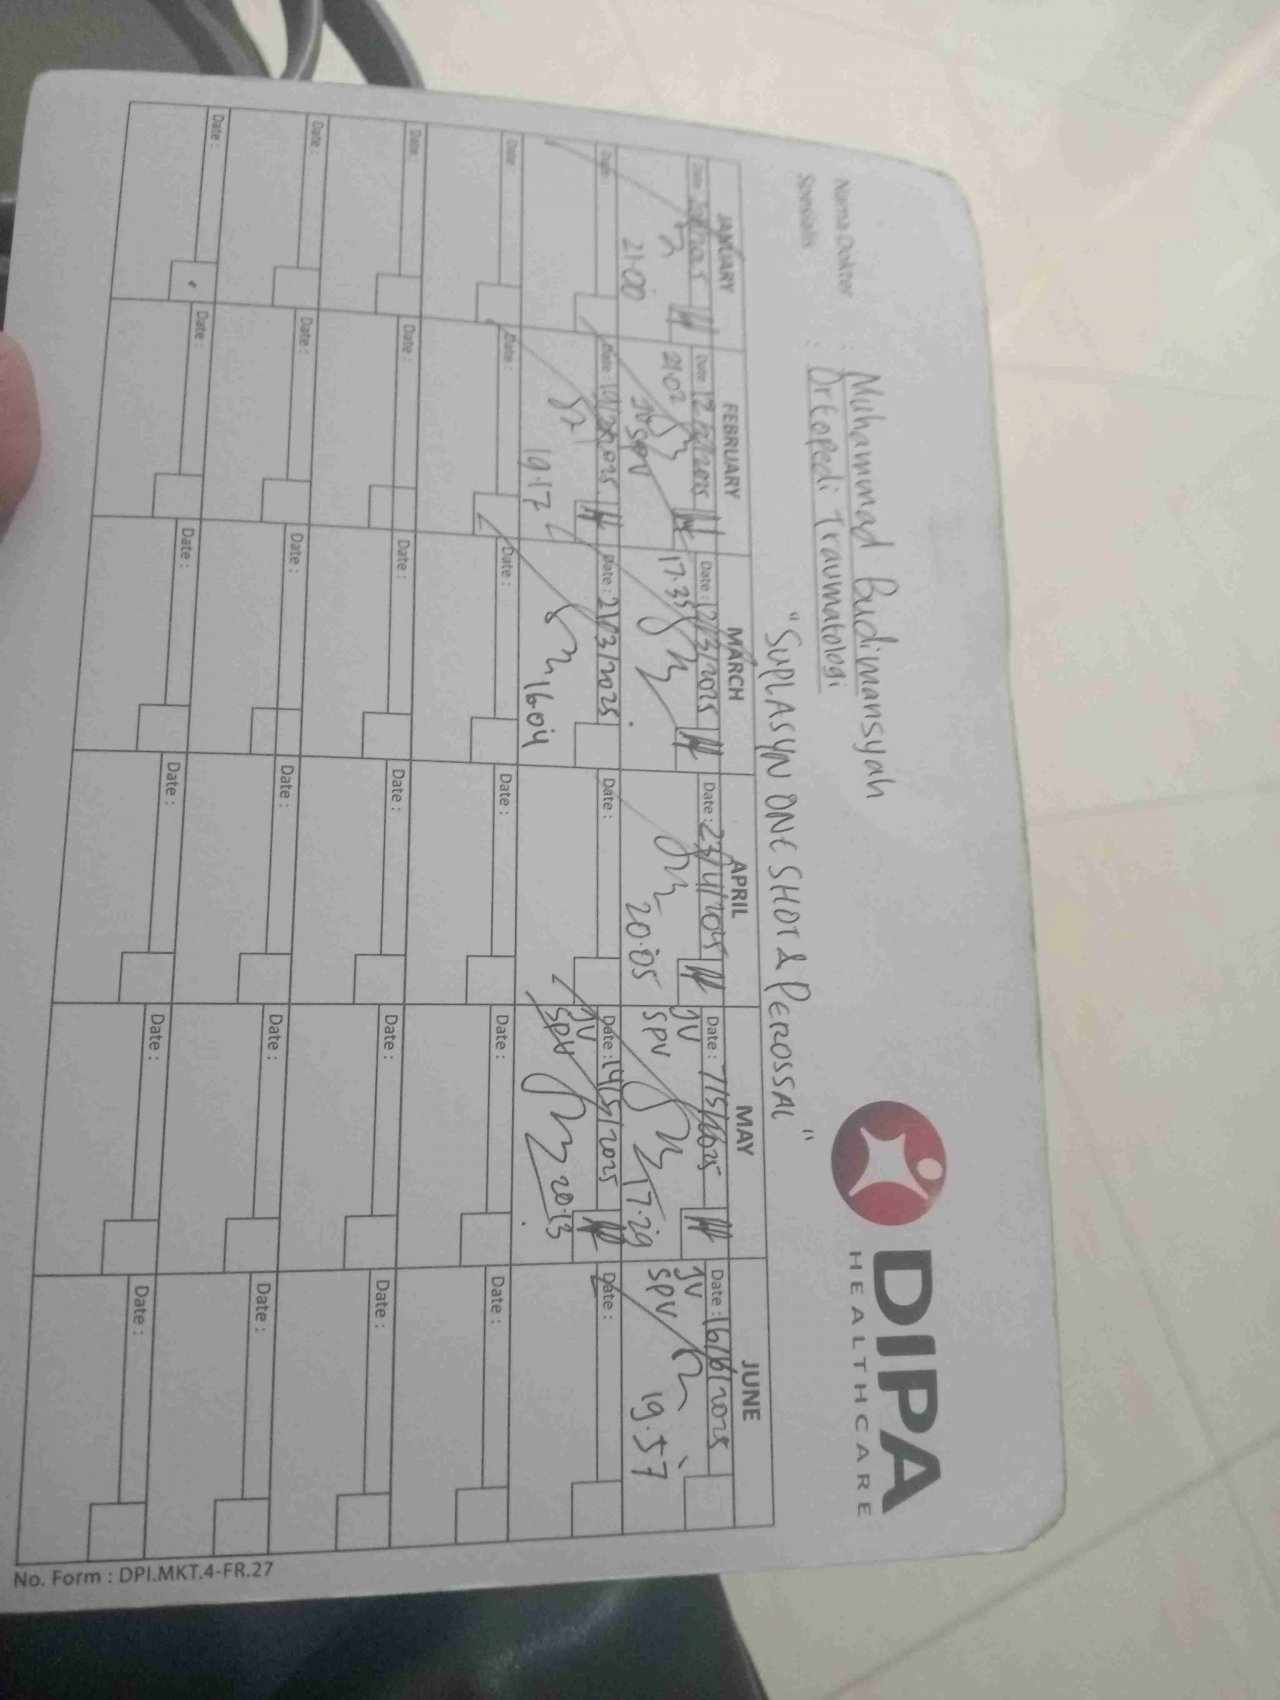 DIPA
HEALTHCARE
Nama Dokter : Muhammad Budimansyah
Spesialis : Ortopedi Traumatologi
"SUPLASYN ONE SHOT & PEROSSAL"
JANUARY FEBRUARY MARCH APRIL MAY JUNE
Date : Date : 12/2/2025 Date : 12/3/2025 Date : 23/4/2025 Date : 7/5/2025 Date : 16/6/2025
21.00 21.02 JV SPV 17.35 20.05 JV SPV 17.29 JV SPV 19.57
Date : Date : 19/2/2025 Date : 21/3/2025 Date : Date : 14/5/2025 Date :
19.17 16.04 JV SPV 20.13
Date : Date : Date : Date : Date : Date :
Date : Date : Date : Date : Date : Date :
Date : Date : Date : Date : Date : Date :
Date : Date : Date : Date : Date : Date :
No. Form : DPI.MKT.4-FR.27